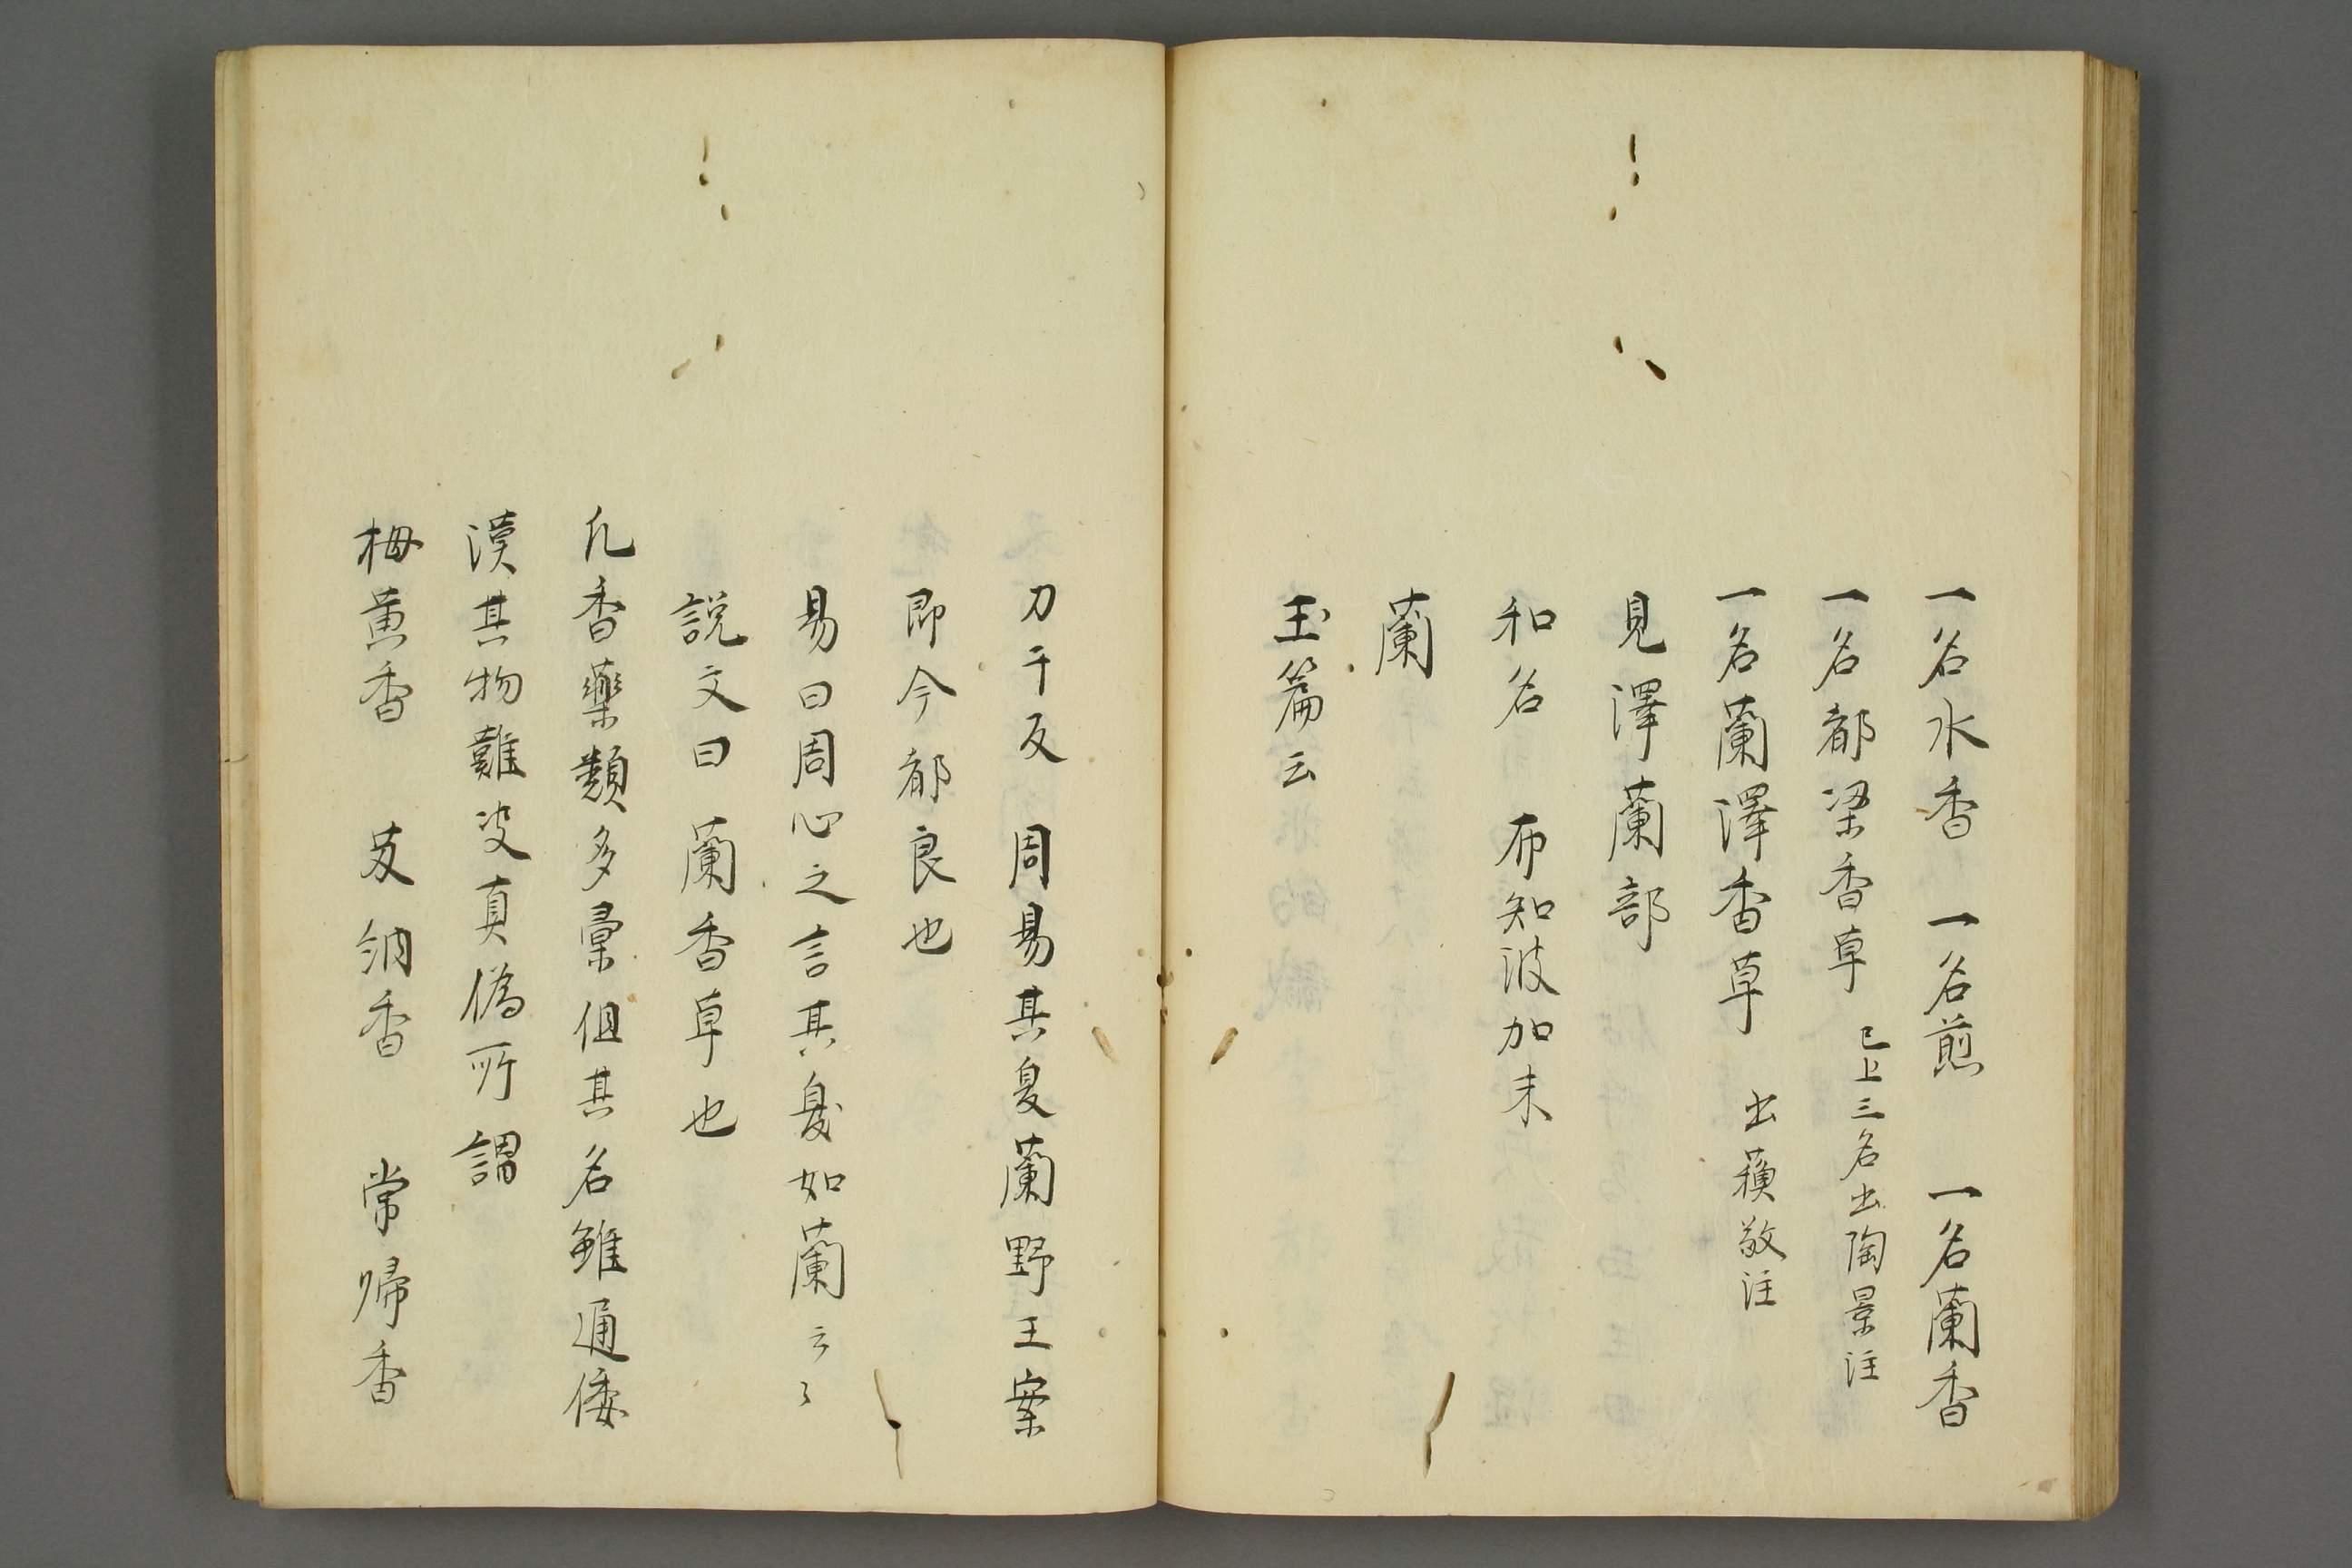 一名水香　一名煎　一名蘭香
一名都梁香草　已上三名出陶景注
一名蘭澤香草　出蘓敬注
見澤蘭部
和名　布知波加末
蘭
玉篇云
力干反　周易其臭蘭野王案
即今都良也
易曰周心之言其臭如蘭云〻
說文曰蘭香草也
凡香藥類多彙但其名雖通倭
漢其物難决真偽所謂
梅薫香　芨納香　常帰香